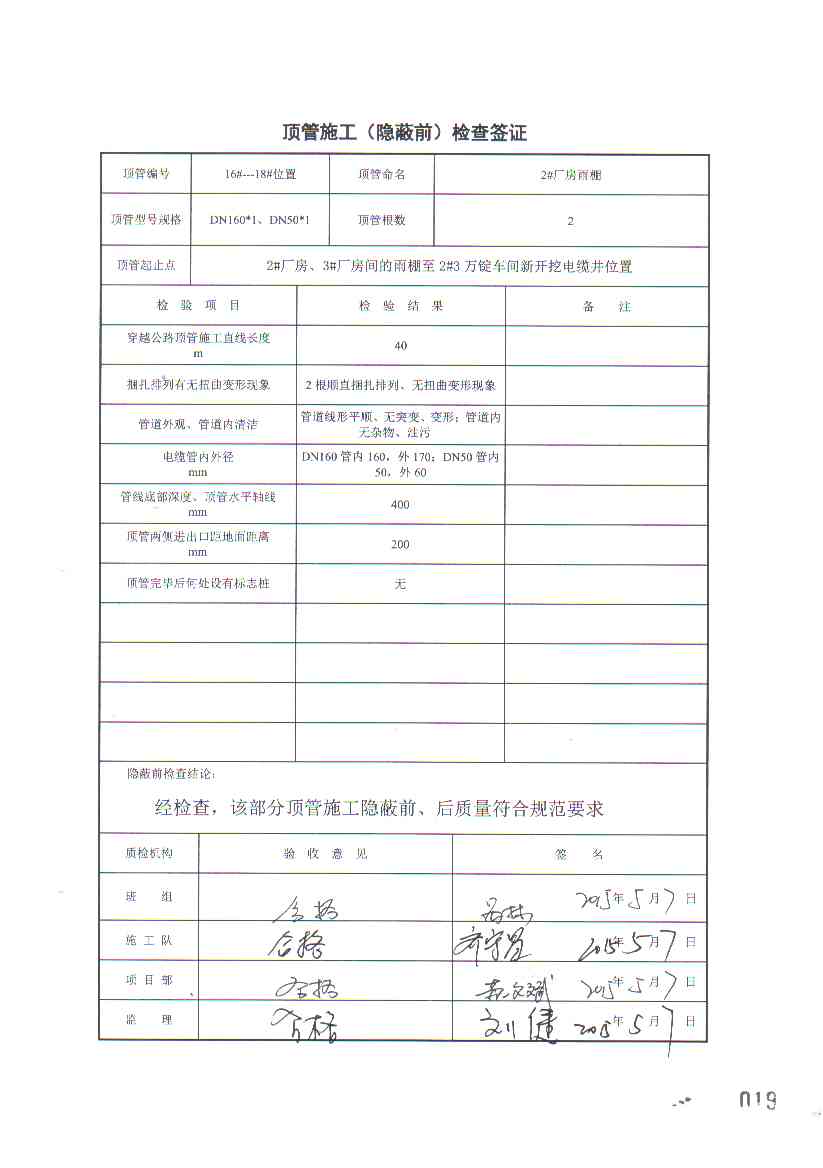 顶管施工（隐蔽前）检查签证
顶管编号 16#---18#位置 顶管命名 2#厂房雨棚
顶管型号规格 DN160*1、DN50*1 顶管根数 2
顶管起止点 2#厂房、3#厂房间的雨棚至 2#3 万锭车间新开挖电缆井位置
检 验 项 目 检 验 结 果 备 注
穿越公路顶管施工直线长度
m
40
捆扎排列有无扭曲变形现象 2 根顺直捆扎排列、无扭曲变形现象
管道外观、管道内清洁
管道线形平顺、无突变、变形；管道内
无杂物、洼污
电缆管内外径
mm
DN160 管内 160，外 170；DN50 管内
50，外 60
管线底部深度、顶管水平轴线
mm
400
顶管两侧进出口距地面距离
mm
200
顶管完毕后何处设有标志桩 无
隐蔽前检查结论：
经检查，该部分顶管施工隐蔽前、后质量符合规范要求
质检机构 验 收 意 见 签 名
班 组 合格 2015年5月7日
施 工 队 合格 2015年5月7日
项 目 部 合格 2015年5月7日
监 理 合格 2015年5月7日
019